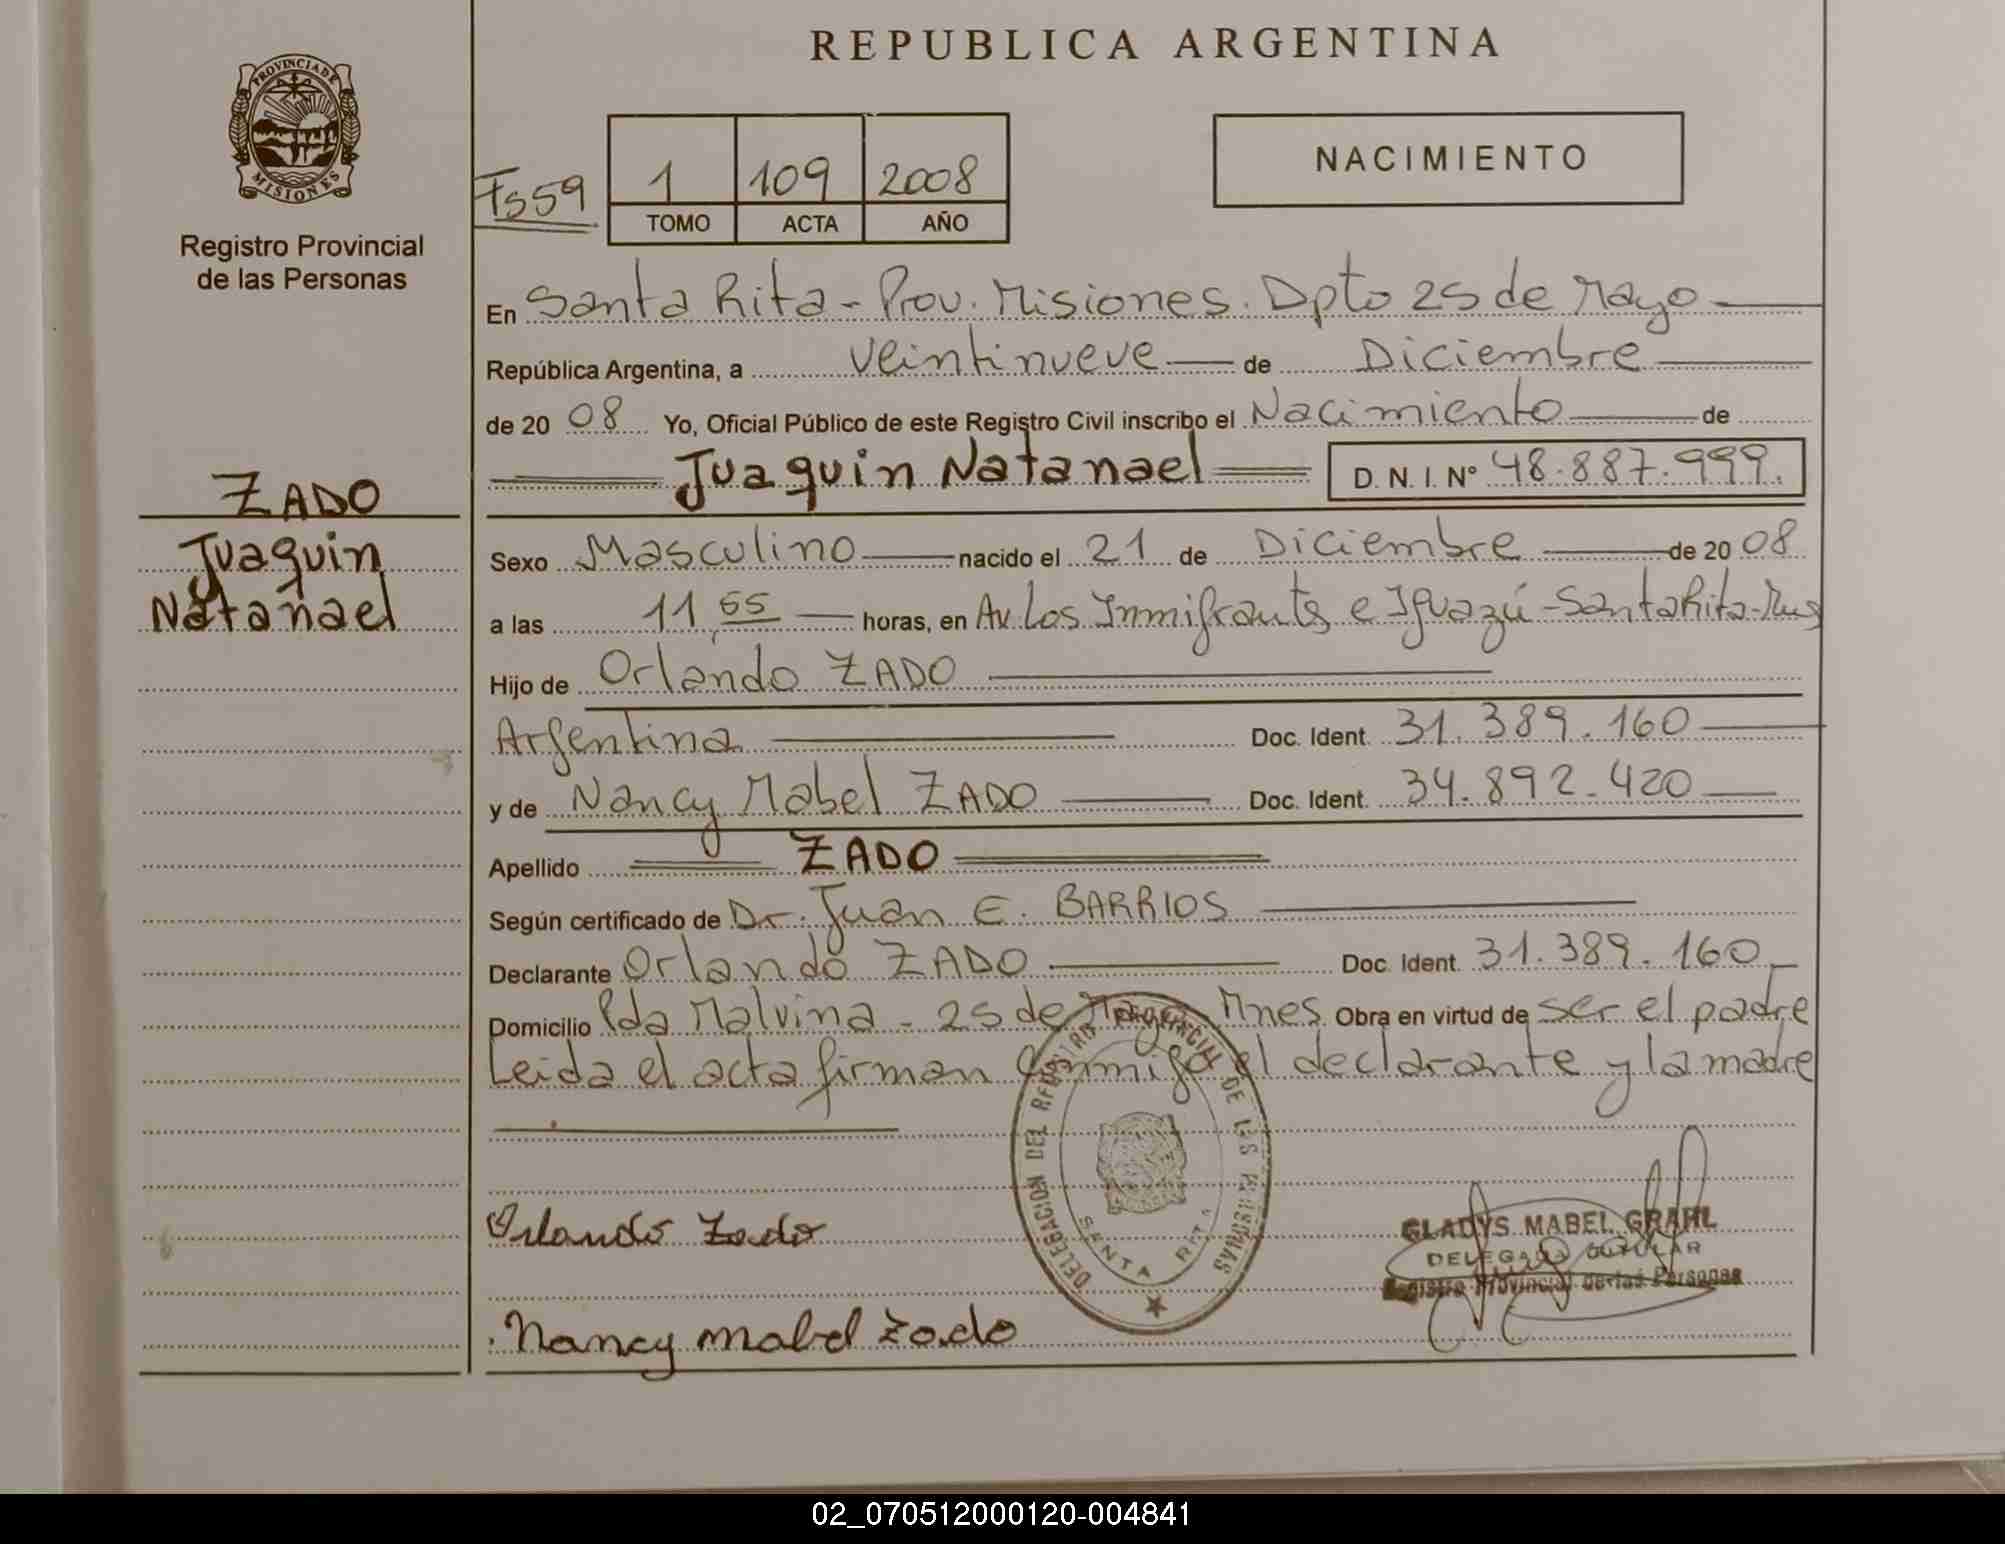 REPUBLICA ARGENTINA
PROVINCIA DE
MISIONES
Registro Provincial
de las Personas
Fs 59
1 109 2008
TOMO ACTA AÑO
NACIMIENTO
En Santa Rita - Prov. Misiones. Dpto 25 de Mayo
República Argentina, a veintinueve de Diciembre
de 20 08 Yo, Oficial Público de este Registro Civil inscribo el Nacimiento de
Juaquin Natanael D. N. I. Nº 48.887.999.
ZADO
Juaquin
Natanael
Sexo Masculino nacido el 21 de Diciembre de 20 08
a las 11,55 horas, en Av. Los Inmigrants e Iguazú - Santa Rita - Mns
Hijo de Orlando ZADO
Argentina Doc. Ident. 31.389.160
y de Nancy Mabel ZADO Doc. Ident. 34.892.420
Apellido ZADO
Según certificado de Dr. Juan E. BARRIOS
Declarante Orlando ZADO Doc. Ident. 31.389.160
Domicilio Pda Malvina - 25 de Mayo Mnes Obra en virtud de ser el padre
Leida el acta firman conmigo el declarante y la madre
DELEGACION DEL REGISTRO PROVINCIAL DE LAS PERSONAS
SANTA RITA
Orlando Zado
GLADYS MABEL GRAHL
DELEGADA TITULAR
Registro Provincial de las Personas
Nancy mabel zado
02_070512000120-004841